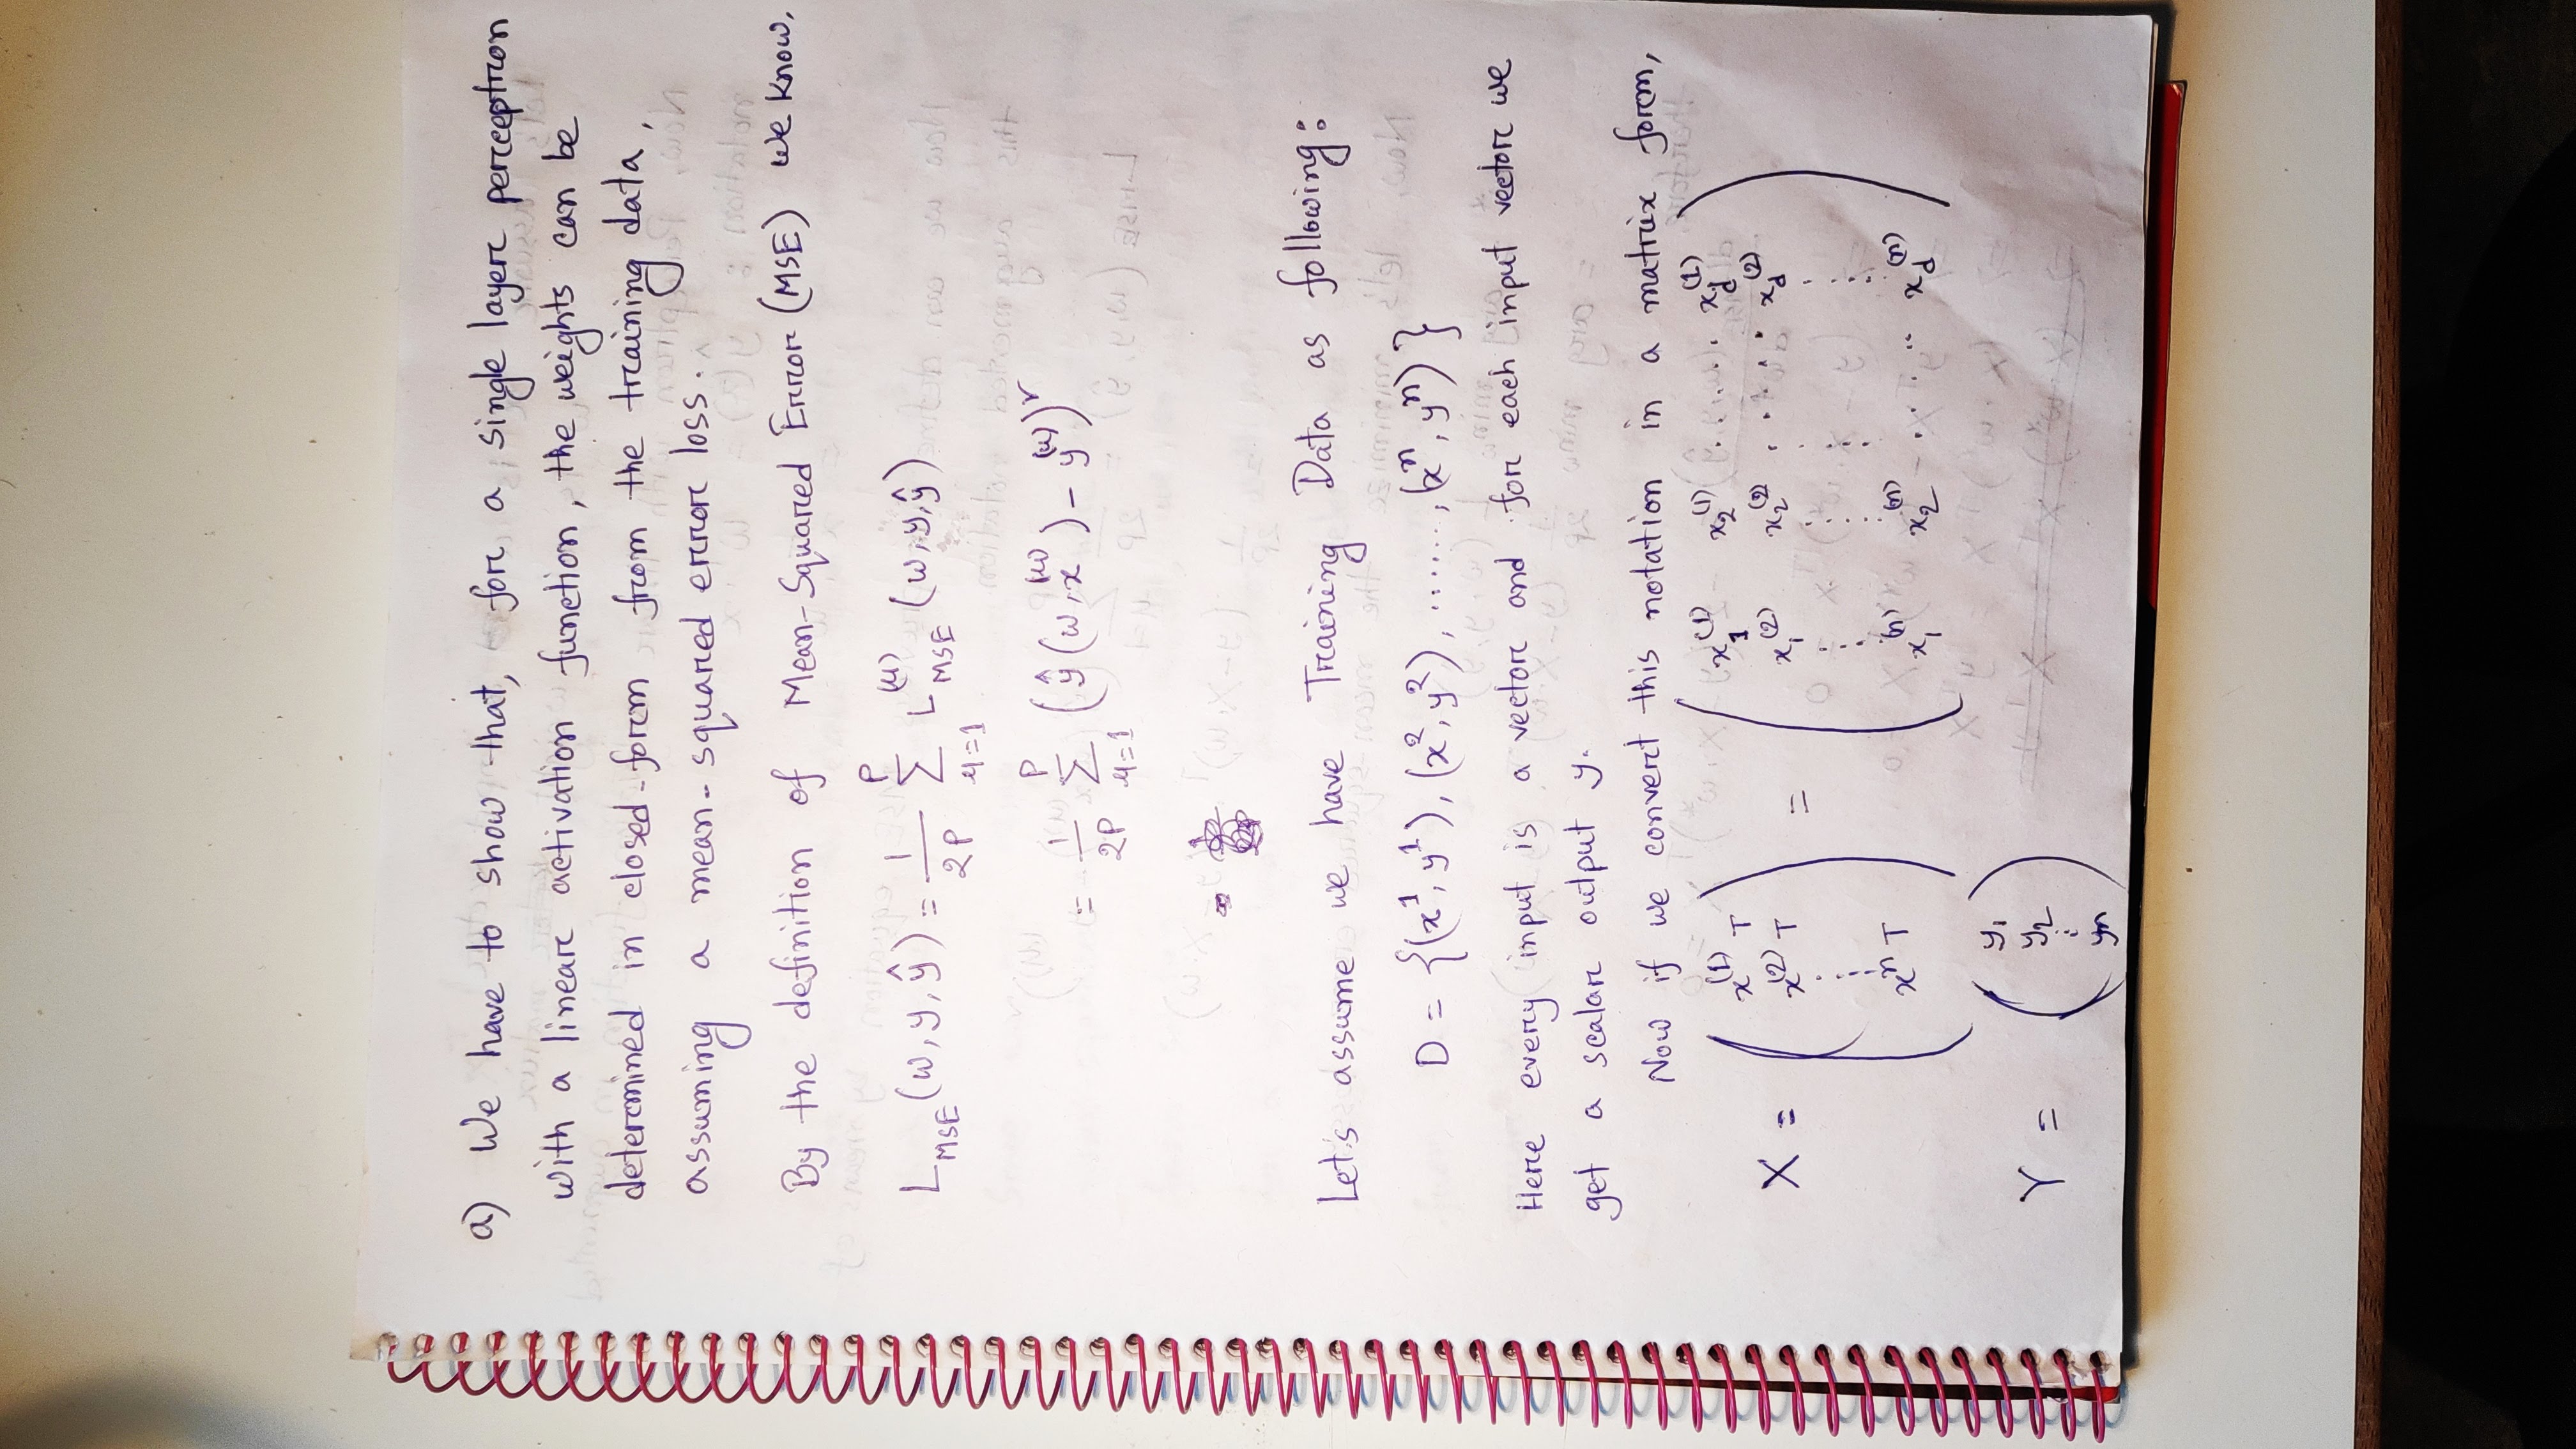 a) We have to show that, for a single layer perceptron
with a linear activation function, the weights can be
determined in closed-form from the training data,
assuming a mean-squared error loss.
By the definition of Mean-Squared Error (MSE) we know,
L_MSE (w, y, ŷ) = 1/2P Σ_{μ=1}^{P} L_MSE^{(μ)} (w, y, ŷ)
= 1/2P Σ_{μ=1}^{P} (ŷ(w, x^{(μ)}) - y^{(μ)})²
Let's assume we have Training Data as following:
D = {(x¹, y¹), (x², y²), ......., (xⁿ, yⁿ)}
Here every input is a vector and for each input vector we
get a scalar output y.
Now if we convert this notation in a matrix form,
X = ( x^{(1)T} x^{(2)T} ⋮ x^{nT} ) = ( x_1^{(1)} x_2^{(1)} .... x_d^{(1)}
x_1^{(2)} x_2^{(2)} .... x_d^{(2)}
⋮ ⋮ ⋮ ⋮
x_1^{(n)} x_2^{(n)} .... x_d^{(n)} )
Y = ( y_1 y_2 ⋮ y_n )